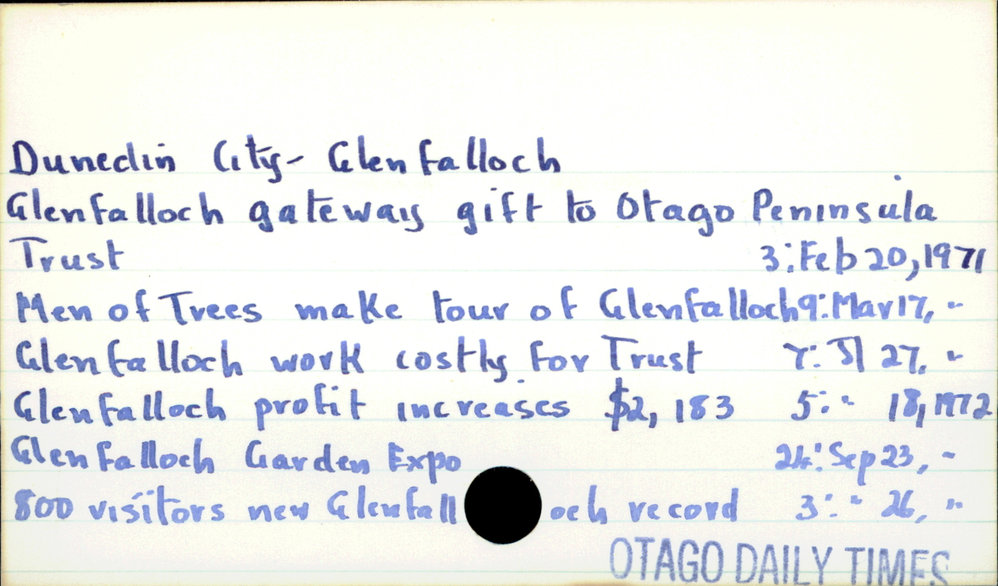 Dunedin City- Glenfalloch
Glenfalloch gateway gift to Otago Peninsula
Trust 3: Feb 20, 1971
Men of Trees make tour of Glenfalloch 9: Mar 17, "
Glenfalloch work costly for Trust 7: Jl 27, "
Glenfalloch profit increases $2,183 5: " 18, 1972
Glenfalloch Garden Expo 24: Sep 23, "
800 visitors new Glenfalloch record 3: " 26, "
OTAGO DAILY TIMES